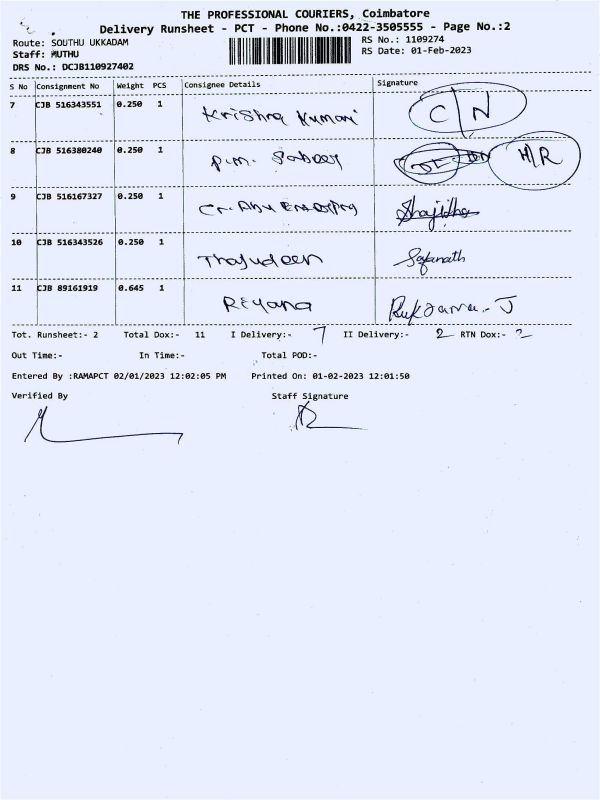 THE PROFESSIONAL COURIERS, Coimbatore
Delivery Runsheet - PCT - Phone No.:0422-3505555 - Page No.:2
Route: SOUTHU UKKADAM
RS No.: 1109274
Staff: MUTHU
RS Date: 01-Feb-2023
DRS No.: DCJB110927402
S No Consignment No Weight PCS Consignee Details Signature
7 CJB 516343551 0.250 1 Krishna Kumari C/N
8 CJB 516380240 0.250 1 P.M. Sabeer H/R
9 CJB 516167327 0.250 1 Shajitha
10 CJB 516343526 0.250 1 Thajudeen Safanath
11 CJB 89161919 0.645 1 Reyana
Tot. Runsheet:- 2 Total Dox:- 11 I Delivery:- 7 II Delivery:- 2 RTN Dox:- 2
Out Time:- In Time:- Total POD:-
Entered By :RAMAPCT 02/01/2023 12:02:05 PM Printed On: 01-02-2023 12:01:50
Verified By Staff Signature